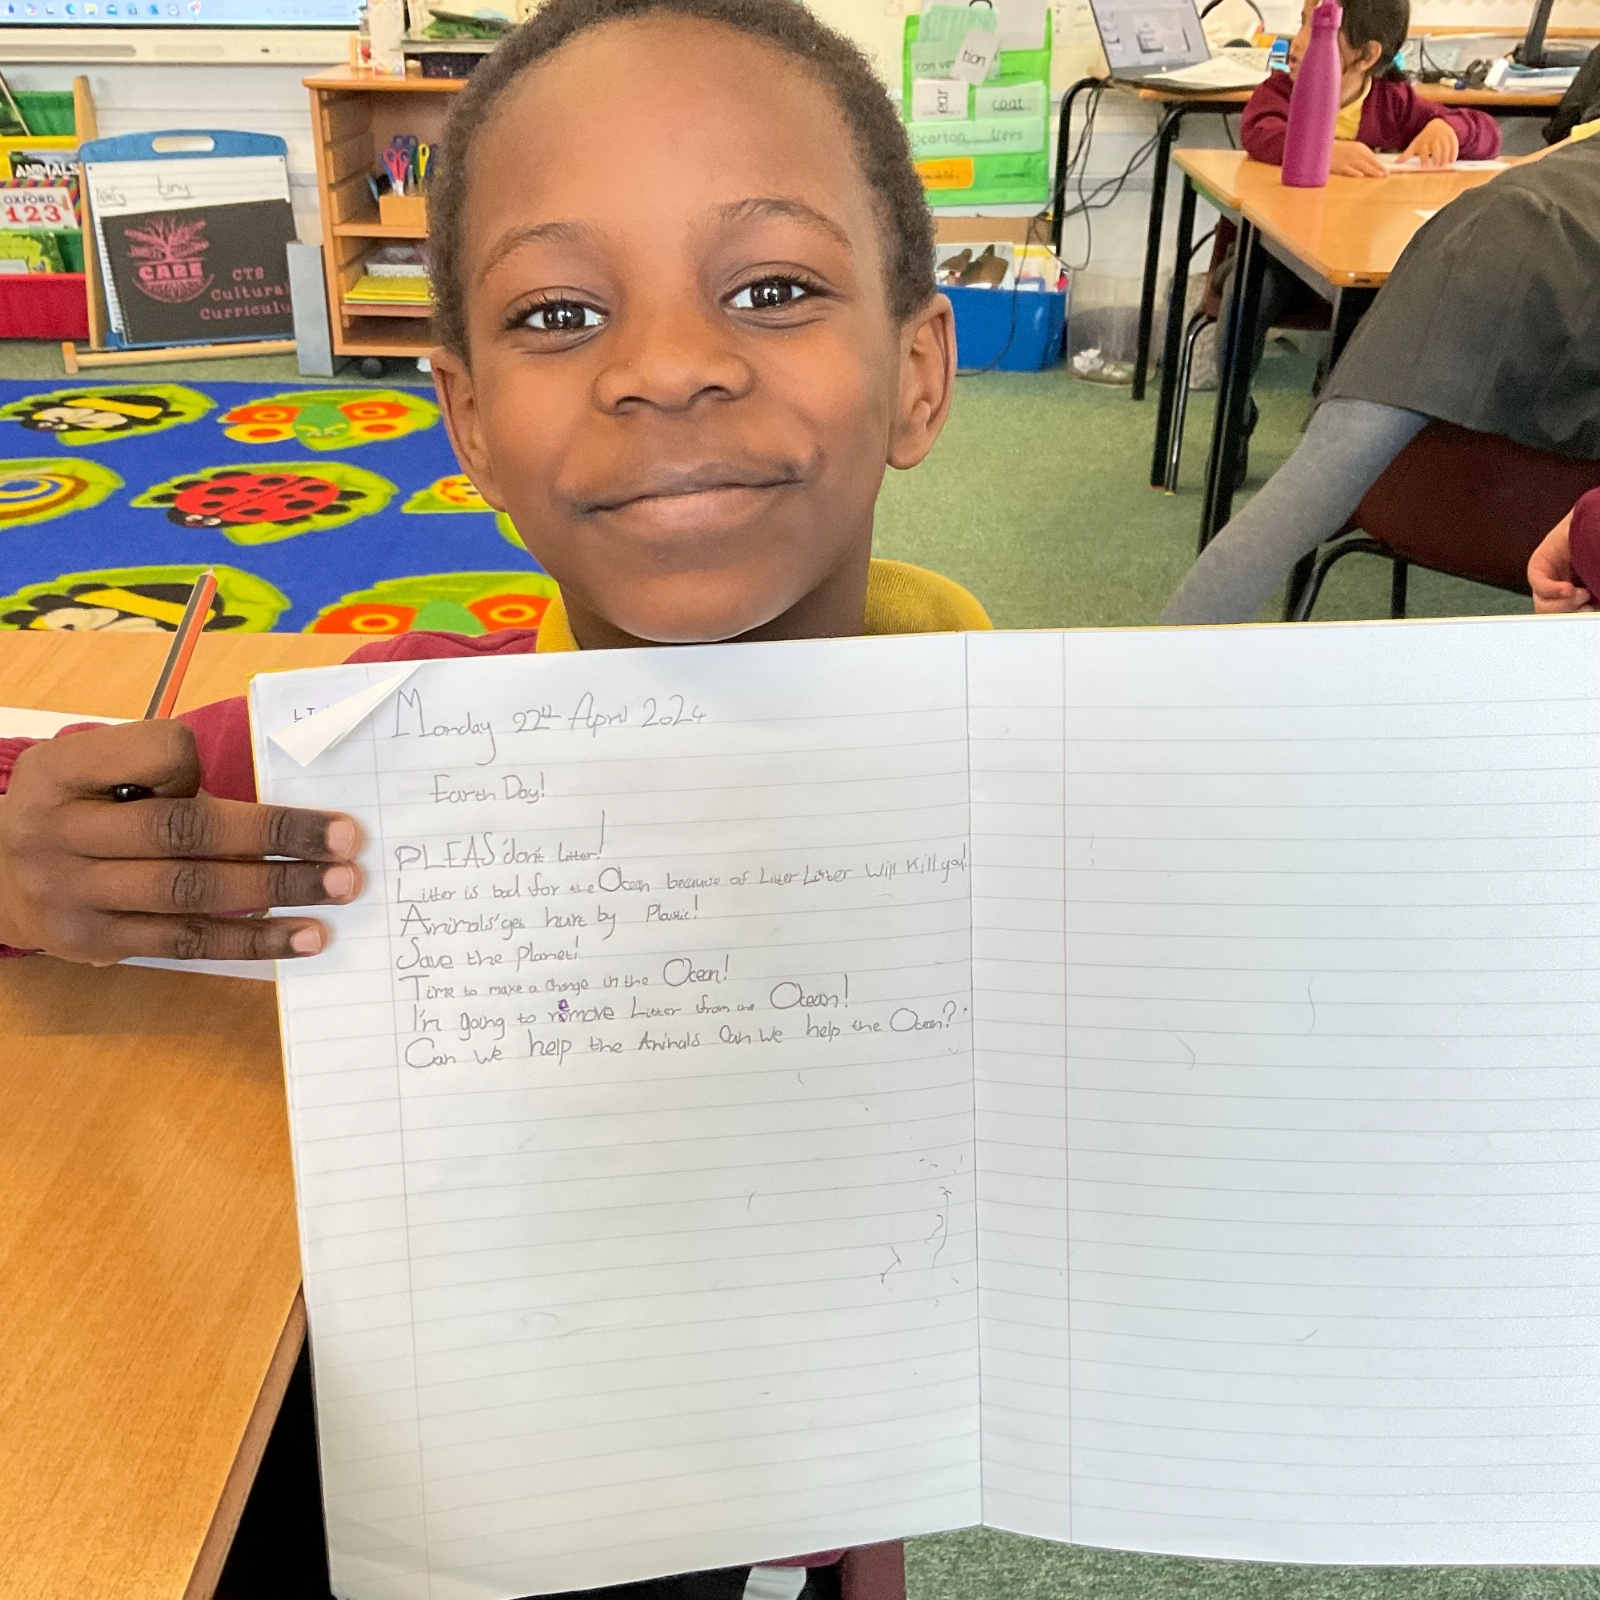 ANIMALS
OXFORD
123
tiny
CARE
CTS
Cultural
Curriculu
tion
ear
coat
carton
trees
L I
Monday 22nd April 2024
Earth Day!
PLEAS don't Litter!
Litter is bad for the Ocean because of Litter Litter Will Kill you!
Animals get hurt by Plastic!
Save the Planet!
Time to make a change in the Ocean!
I'm going to remove Litter from the Ocean!
Can we help the Animals Can We help the Ocean?